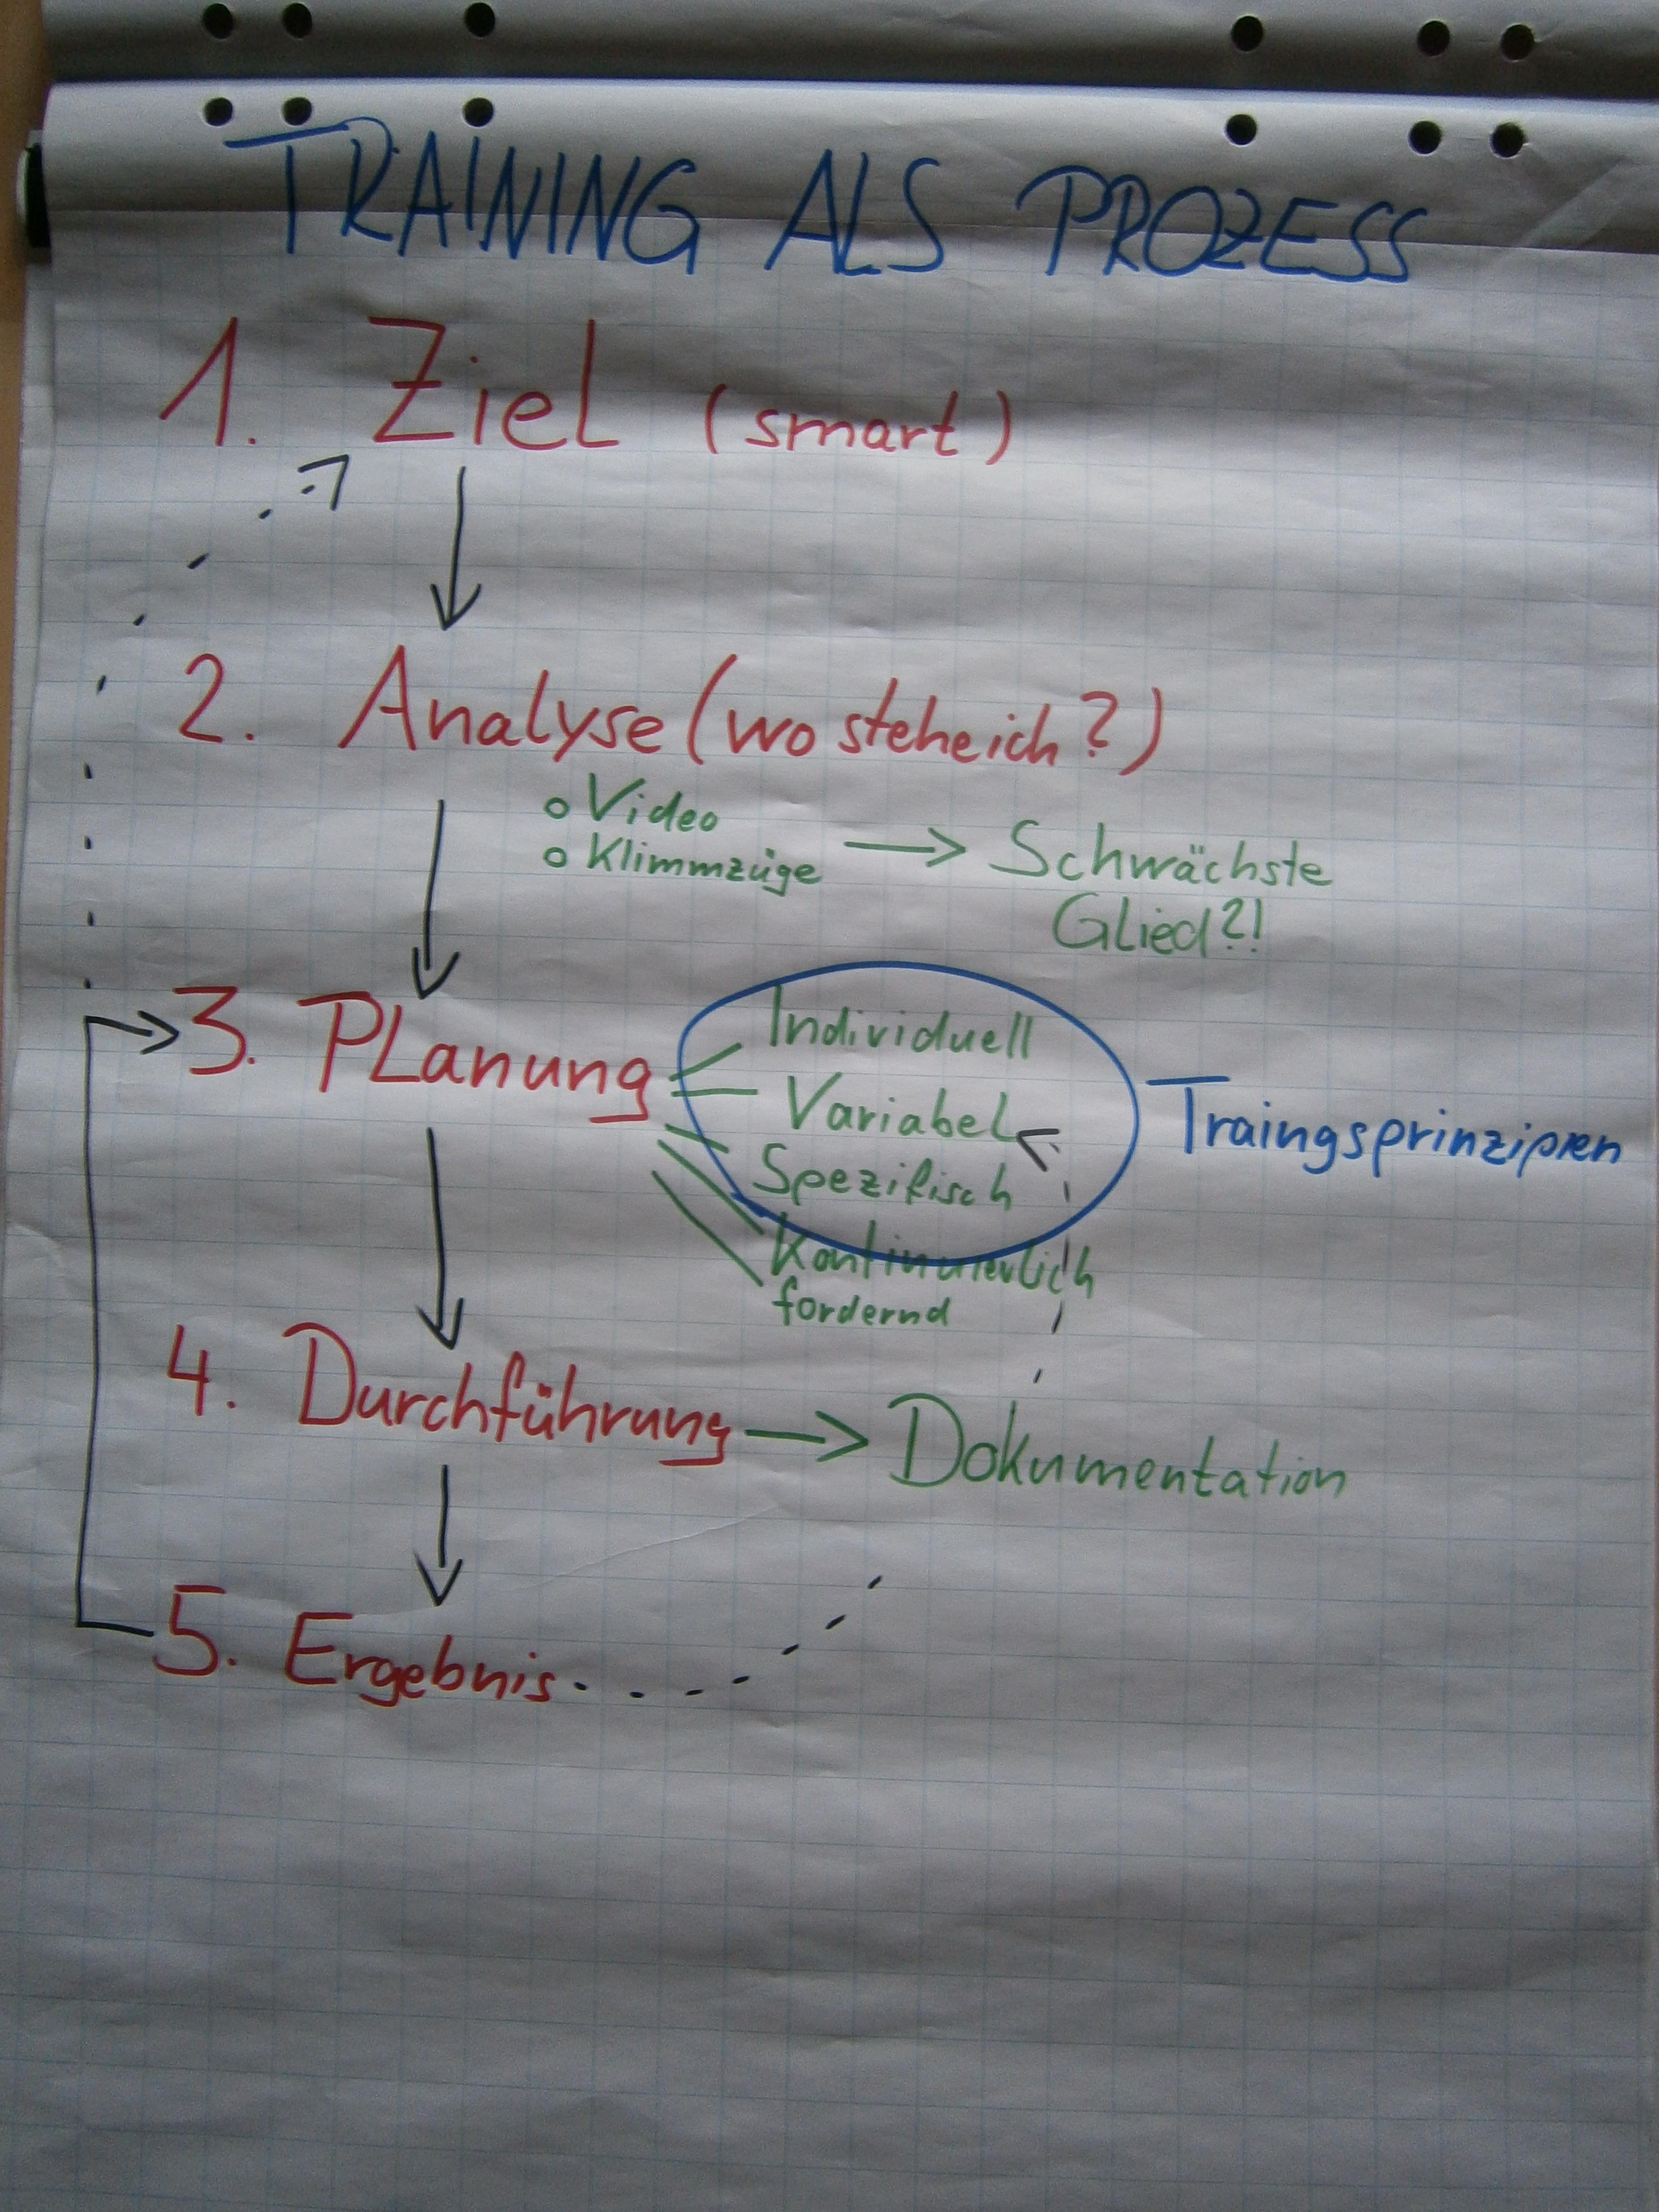 TRAINING ALS PROZESS
1. Ziel (smart)
2. Analyse (wo stehe ich?)
o Video
o Klimmzüge → Schwächste
Glied?!
3. Planung
Individuell
Variabel
Spezifisch
Kontinuierlich
fordernd
Traingsprinzipien
4. Durchführung → Dokumentation
5. Ergebnis